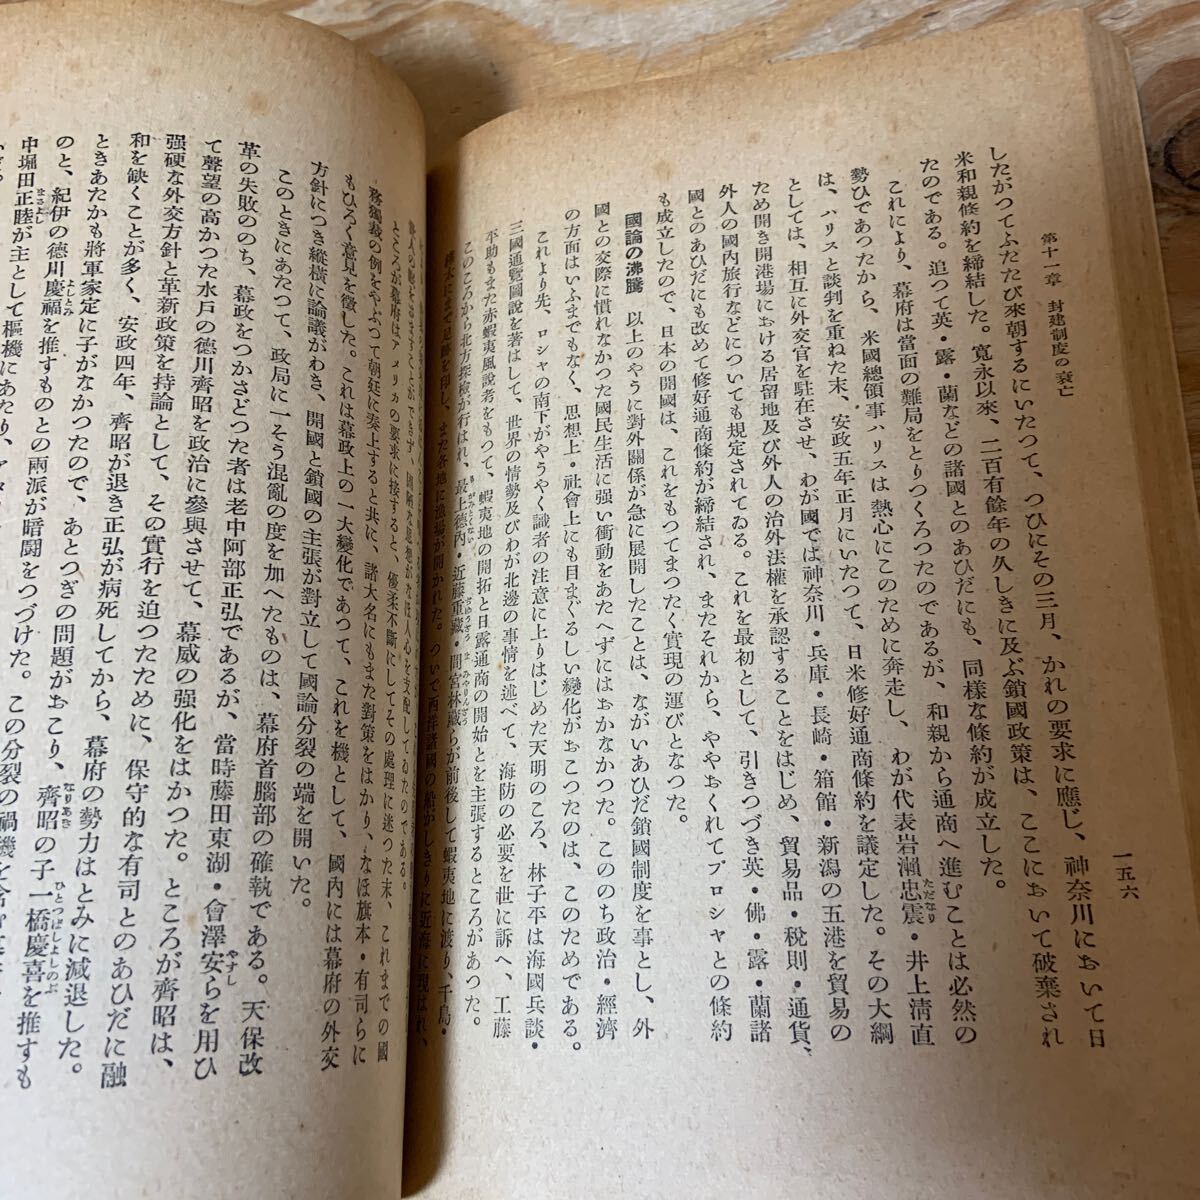 第十一章 封建制度の衰亡
一五六
したがつてふたたび來朝するにいたつて、つひにその三月、かれの要求に應じ、神奈川において日
米和親條約を締結した。寬永以來、二百有餘年の久しきに及ぶ鎖國政策は、ここにおいて破棄され
たのである。追つて英・露・蘭などの諸國とのあひだにも、同樣な條約が成立した。
これにより、幕府は當面の難局をとりつくろつたのであるが、和親から通商へ進むことは必然の
勢ひであつたから、米國總領事ハリスは熱心にこのために奔走し、わが代表岩瀨忠震・井上淸直
ただなり
は、ハリスと談判を重ねた末、安政五年正月にいたつて、日米修好通商條約を議定した。その大綱
としては、相互に外交官を駐在させ、わが國では神奈川・兵庫・長崎・箱館・新潟の五港を貿易の
ため開き開港場における居留地及び外人の治外法權を承認することをはじめ、貿易品・稅則・通貨、
外人の國內旅行などについても規定されてゐる。これを最初として、引きつづき英・佛・露・蘭諸
國とのあひだにも改めて修好通商條約が締結され、またそれから、ややおくれてプロシャとの條約
も成立したので、日本の開國は、これをもつてまつたく實現の運びとなつた。
國論の沸騰 以上のやうに對外關係が急に展開したことは、ながいあひだ鎖國制度を事とし、外
國との交際に慣れなかつた國民生活に强い衝動をあたへずにはおかなかつた。こののち政治・經濟
の方面はいふまでもなく、思想上・社會上にも目まぐるしい變化がおこつたのは、このためである。
これより先、ロシヤの南下がやうやく識者の注意に上りはじめた天明のころ、林子平は海國兵談・
三國通覽圖說を著はして、世界の情勢及びわが北邊の事情を述べて、海防の必要を世に訴へ、工藤
平助もまた赤蝦夷風說考をもつて、蝦夷地の開拓と日露通商の開始とを主張するところがあつた。
このころから北方探檢が行はれ、最上德內・近藤重藏・間宮林藏らが前後して蝦夷地に渡り、千島・
樺太にまで足跡を印し、また各地に漁場が開かれた。ついで西洋諸國の船がしきりに近海に現はれ、
ところが幕府はアメリカの要求に接すると、優柔不斷にしてその處理に迷つた末、これまでの國
務獨裁の例をやぶつて朝廷に奏上すると共に、諸大名にもまた對策をはかり、なほ旗本・有司らに
もひろく意見を徵した。これは幕政上の一大變化であつて、これを機として、國內には幕府の外交
方針につき縱橫に論議がわき、開國と鎖國の主張が對立して國論分裂の端を開いた。
このときにあたつて、政局に一そう混亂の度を加へたものは、幕府首腦部の確執である。天保改
革の失敗ののち、幕政をつかさどつた者は老中阿部正弘であるが、當時藤田東湖・會澤安らを用ひ
やすし
て聲望の高かつた水戶の德川齊昭を政治に參與させて、幕威の强化をはかつた。ところが齊昭は、
强硬な外交方針と革新政策を持論として、その實行を迫つたために、保守的な有司とのあひだに融
和を缺くことが多く、安政四年、齊昭が退き正弘が病死してから、幕府の勢力はとみに減退した。
ときあたかも將軍家定に子がなかつたので、あとつぎの問題がおこり、齊昭の子一橋慶喜を推すも
なりあき ひとつばしよしのぶ
のと、紀伊の德川慶福を推すものとの兩派が暗闘をつづけた。この分裂の禍機を
よしとみ
中堀田正睦が主として樞機にあたり、
まさよし